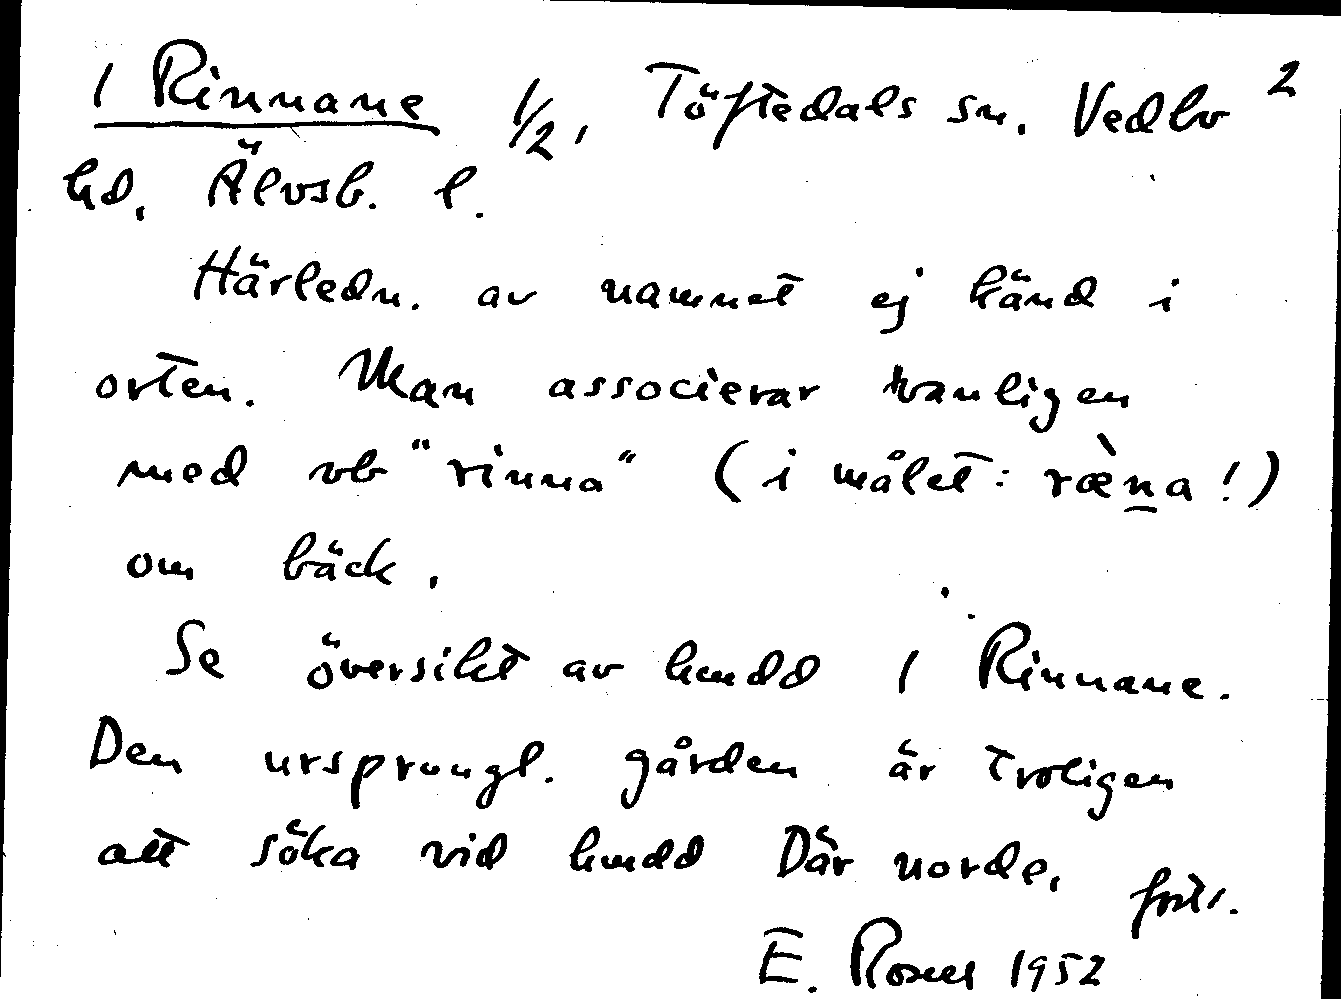 I Rinnane 1/2, Töftedals sn. Vedbo 2
hd. Älvsb. l.
Härledn. av namnet ej känd i
orten. Man associerar vanligen
med vb "rinna" (i målet: ræ̀n̲a!)
om bäck.
Se översikt av hmdd I Rinnane.
Den ursprungl. gården är troligen
att söka vid hmdd Där norde, forts.
E. 1952